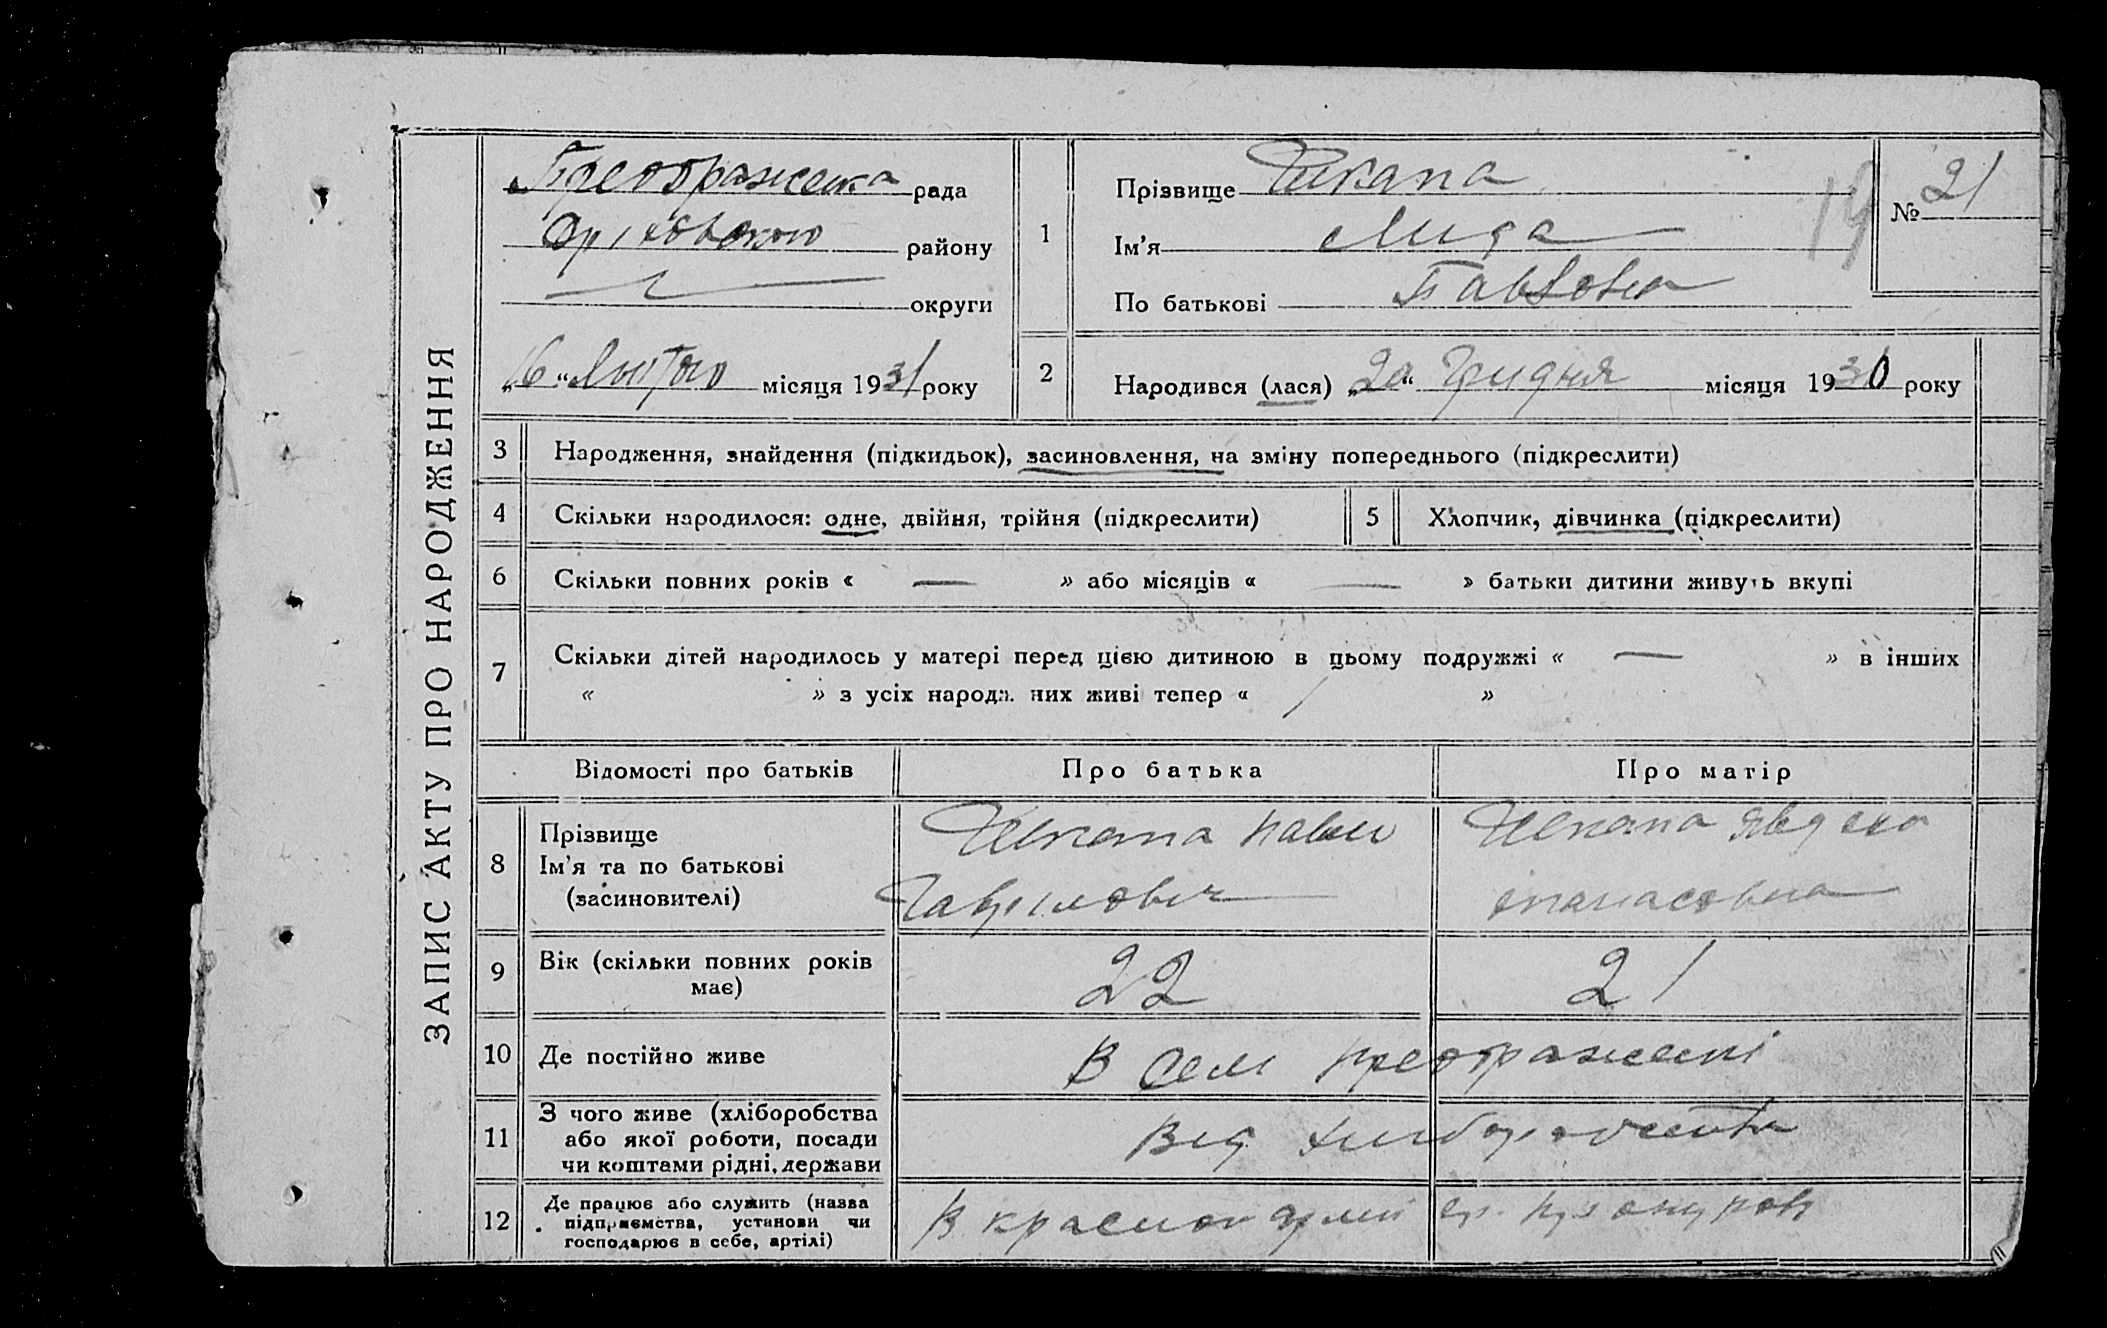 ЗАПИС АКТУ ПРО НАРОДЖЕННЯ
Преображенка рада
Оріховского району
округи
„16“ Лютого місяця 1931 року
1
Прізвище Шкапа
Ім’я Лида
По батькові Павловна
19
№ 21
2
Народився (лася) „20“ Грудня місяця 1930 року
3 Народження, знайдення (підкидьок), засиновлення, на зміну попереднього (підкреслити)
4 Скільки народилося: одне, двійня, трійня (підкреслити)
5 Хлопчик, дівчинка (підкреслити)
6 Скільки повних років « — » або місяців « — » батьки дитини живуть вкупі
7 Скільки дітей народилось у матері перед цією дитиною в цьому подружжі « — » в інших
« » з усіх народж. них живі тепер « / »
Відомості про батьків Про батька Про матір
8 Прізвище
Ім’я та по батькові
(засиновителі)
Шкапа Павло
Гаврилович
Шкапа Явдоха
опанасовна
9 Вік (скільки повних років
має)
22
21
10 Де постійно живе
В селі преображенкі
11 З чого живе (хліборобства
або якої роботи, посади
чи коштами рідні, держави
Від хліборобства
12 Де працює або служить (назва
підприємства, установи чи
господарює в себе, артілі)
В